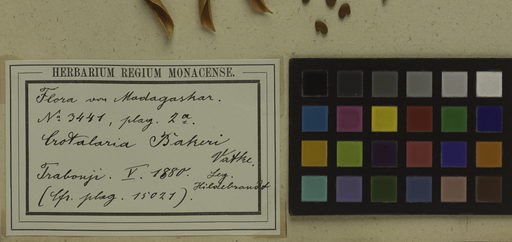 HERBARIUM REGIUM MONACENSE.
Flora von Madagaskar.
No. 3441, plag. 2a.
Crotalaria Bakeri
Vatke.
Trabonji. V. 1880. Leg.
Hildebrandt
(Cfr. plag. 15021).